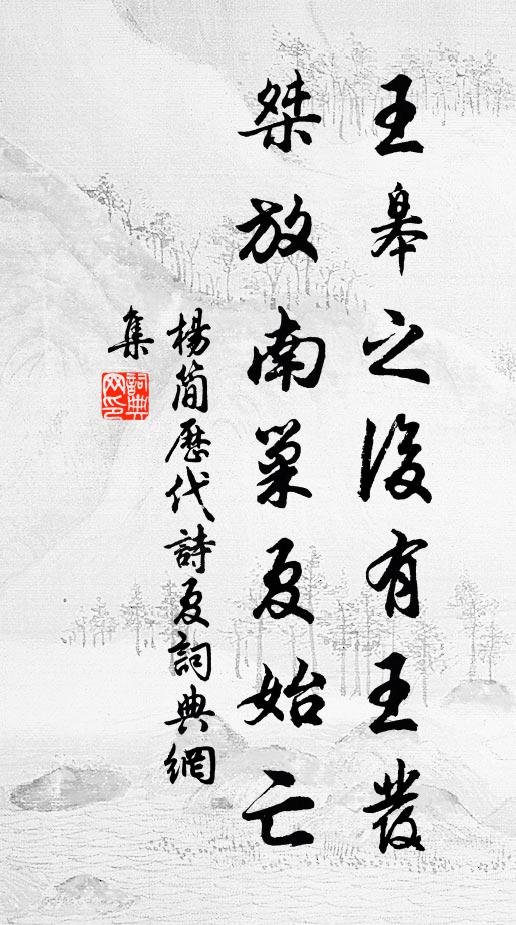 王皋之後有王發
桀放南巢夏始亡
楊簡歷代詩夏詞典網
集
詞典網印